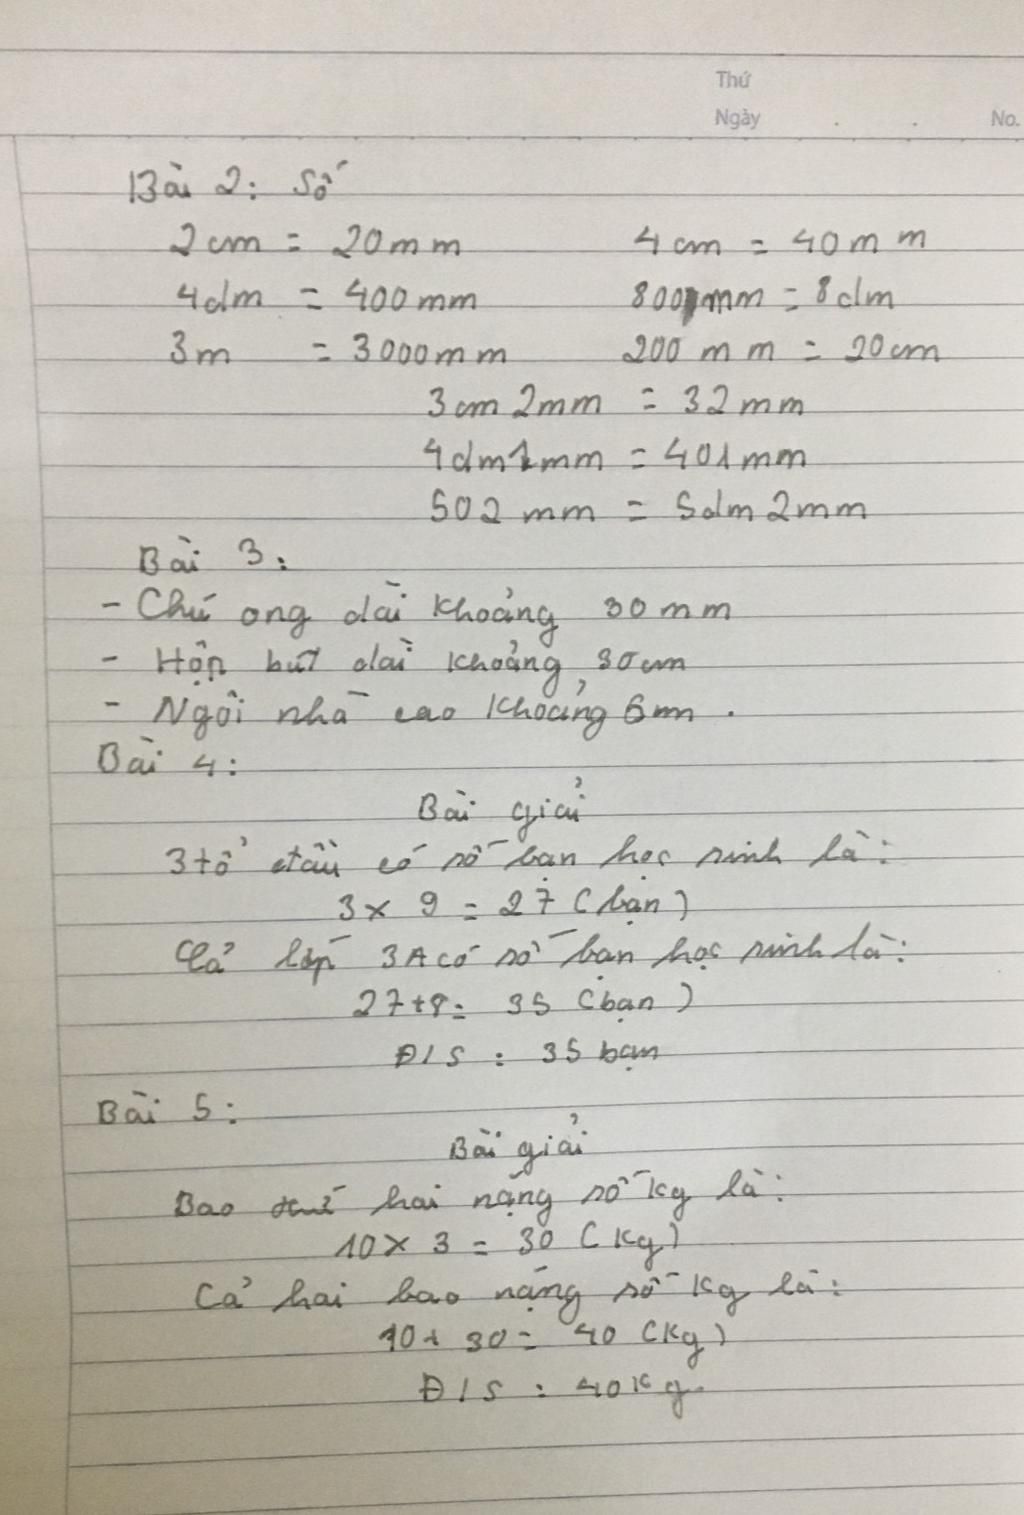 Thứ
Ngày No.
Bài 2: Số
2cm = 20mm 4cm = 40mm
4dm = 400mm 800mm = 8dm
3m = 3000mm 200mm = 20cm
3cm 2mm = 32mm
4dm1mm = 401mm
502mm = 5dm 2mm
Bài 3:
- Chú ong dài khoảng 30mm
- Hộp bút dài khoảng 30cm
- Ngôi nhà cao khoảng 6m.
Bài 4:
Bài giải
3 tổ đầu có số bạn học sinh là:
3 x 9 = 27 (bạn)
Cả lớp 3A có số bạn học sinh là:
27+8= 35 (bạn)
Đ/S : 35 bạn
Bài 5:
Bài giải
Bao thứ hai nặng số kg là:
10 x 3 = 30 (kg)
Cả hai bao nặng số kg là:
10+ 30= 40 (kg)
Đ/S : 40kg.